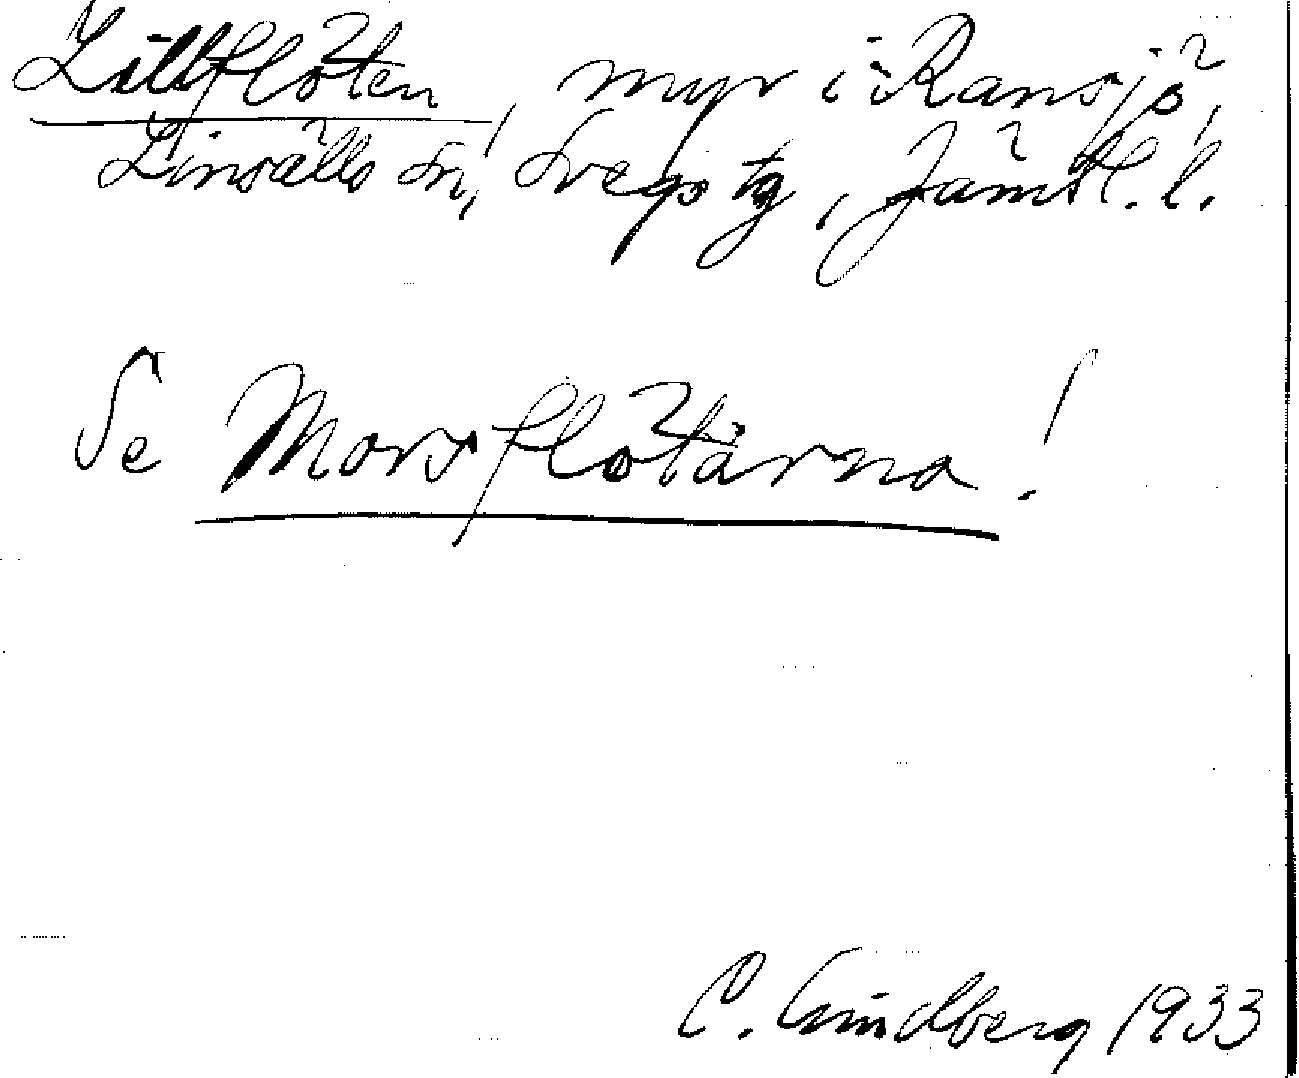 Lillflöten, myr i Ransjö,
Linsälls sn, Svegs tg, Jämtl. l.
Se Morsflötärna!
C. Lindberg 1933